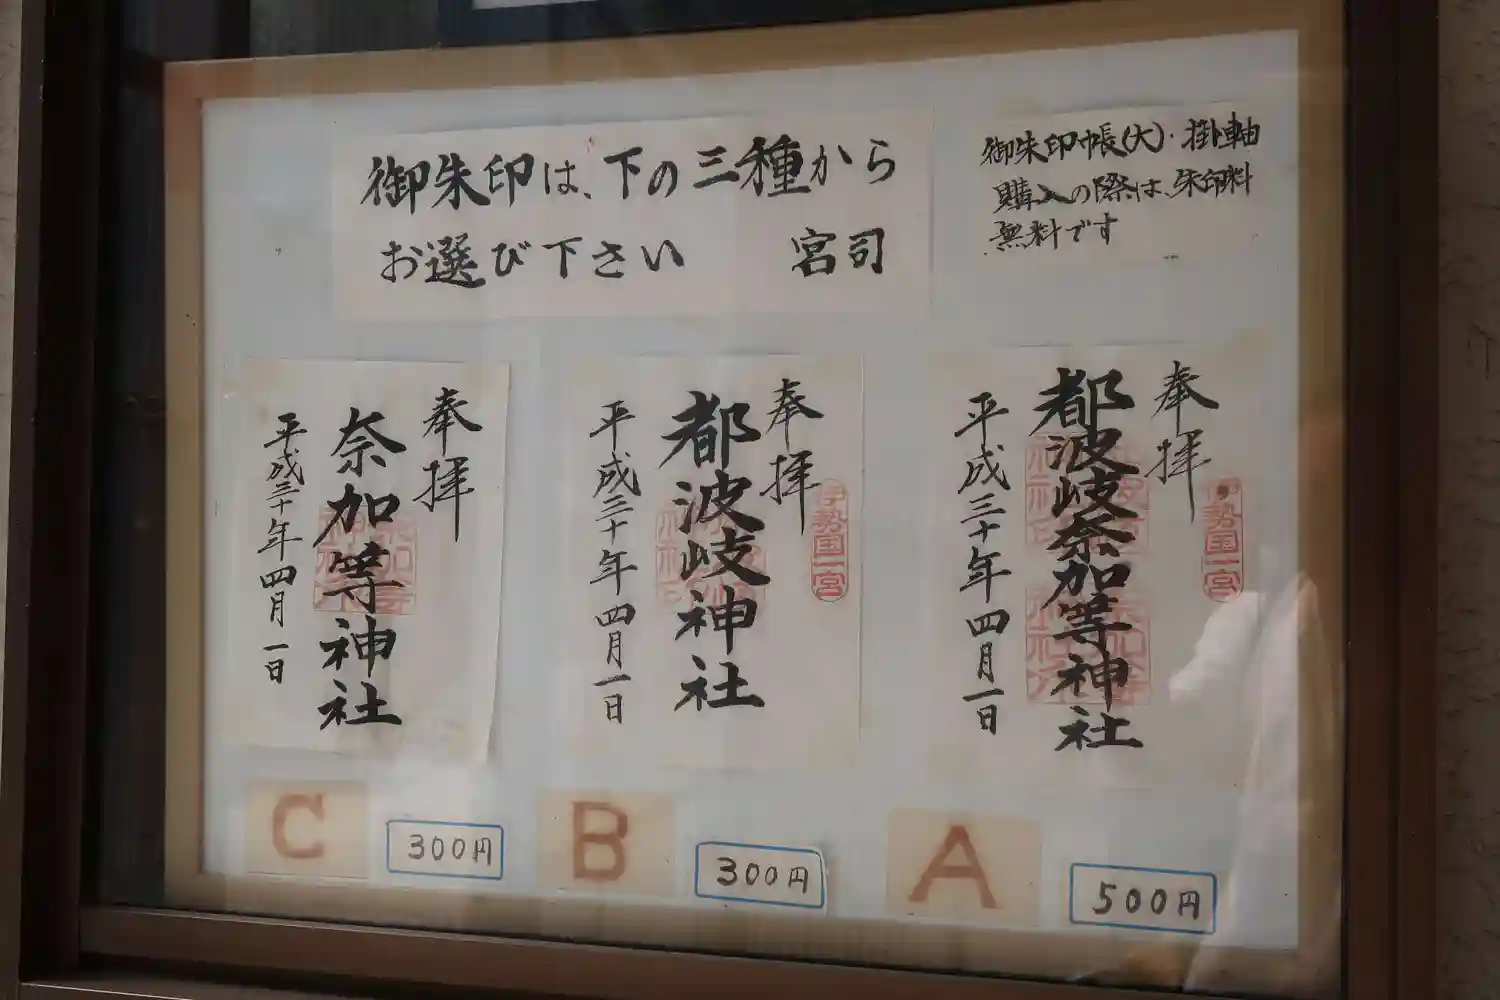 御朱印は、下の三種から
お選び下さい　宮司
御朱印帳(大)・掛軸
購入の際は、朱印料
無料です
奉拝
都波岐奈加等神社
平成三十年四月一日
伊勢国一宮
A
500円
奉拝
都波岐神社
平成三十年四月一日
伊勢国一宮
B
300円
奉拝
奈加等神社
平成三十年四月一日
C
300円